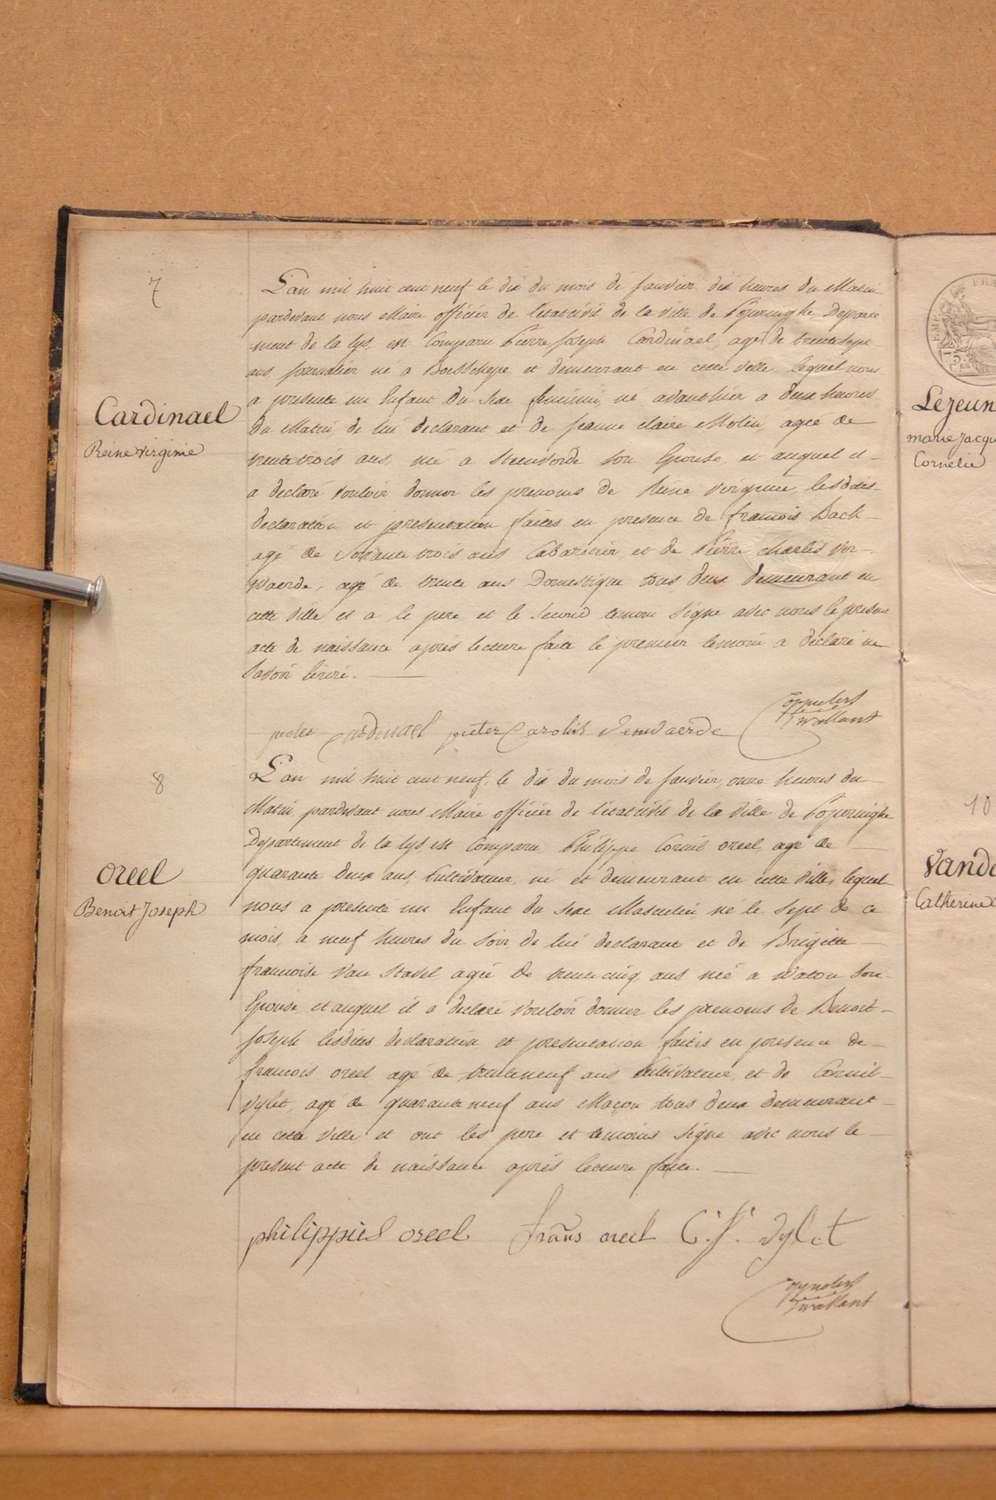 7
L'an mil huit cent neuf le dix du mois de Janvier dix heures du Matin
pardevant nous Maire officier de l'état civil de la ville de Poperinghe Departe
ment de la Lys, est Comparu Pierre Joseph Cardinael, agé de trentesept
ans journalier né a Boeschepe et demeurant en cette ville, lequel nous
a presenté un Enfant du Sexe feminin, né avanthier a deux heures
Cardinael
Reine virginie
du Matin de lui declarant et de Jeanne claire Molin, agée de
trentetrois ans, née a Steenvorde son Epouse et auquel il
a declaré vouloir donner les prenoms de Reine virginie lesdites
declaration et presentation faites en presence de francois Back
agé de soixante trois ans Cabaretier et de Pierre charles Ver
waerde, agé de trente ans Domestique tous deux demeurant en
cette ville et a le pere et le second temoin signé avec nous le present
acte de naissance après lecture faite le premier temoin a declaré ne
savoir écrire.
pieter Cardinael pieter Carolus Verwaerde
8
L'an mil huit cent neuf, le dix du mois de Janvier, onze heures du
Matin pardevant nous Maire officier de l'état civil de la ville de Poperinghe
Departement de la Lys est Comparu Philippe Cornil oreel, agé de
quarante deux ans, Cultivateur, né et demeurant en cette ville, lequel
oreel
Benoit Joseph
nous a presenté un Enfant du Sexe Masculin né le sept de ce
mois, a neuf heures du soir de lui declarant et de Brigitte
francoise Van Stavel agée de trentecinq ans née a Watou son
Epouse et auquel il a declaré vouloir donner les prenoms de Benoit
Joseph lesdites declaration et presentation faites en presence de
francois oreel agé de trenteneuf ans Cultivateur, et de Cornil
Vylet, agé de quarante neuf ans Maçon tous deux demeurant
en cette ville et ont les pere et temoins signé avec nous le
present acte de naissance après lecture faite.
philippus oreel frans oreel C. J. Vylet
Lejeun
marie Jacqu
Cornelie
10
Vand
Catherine